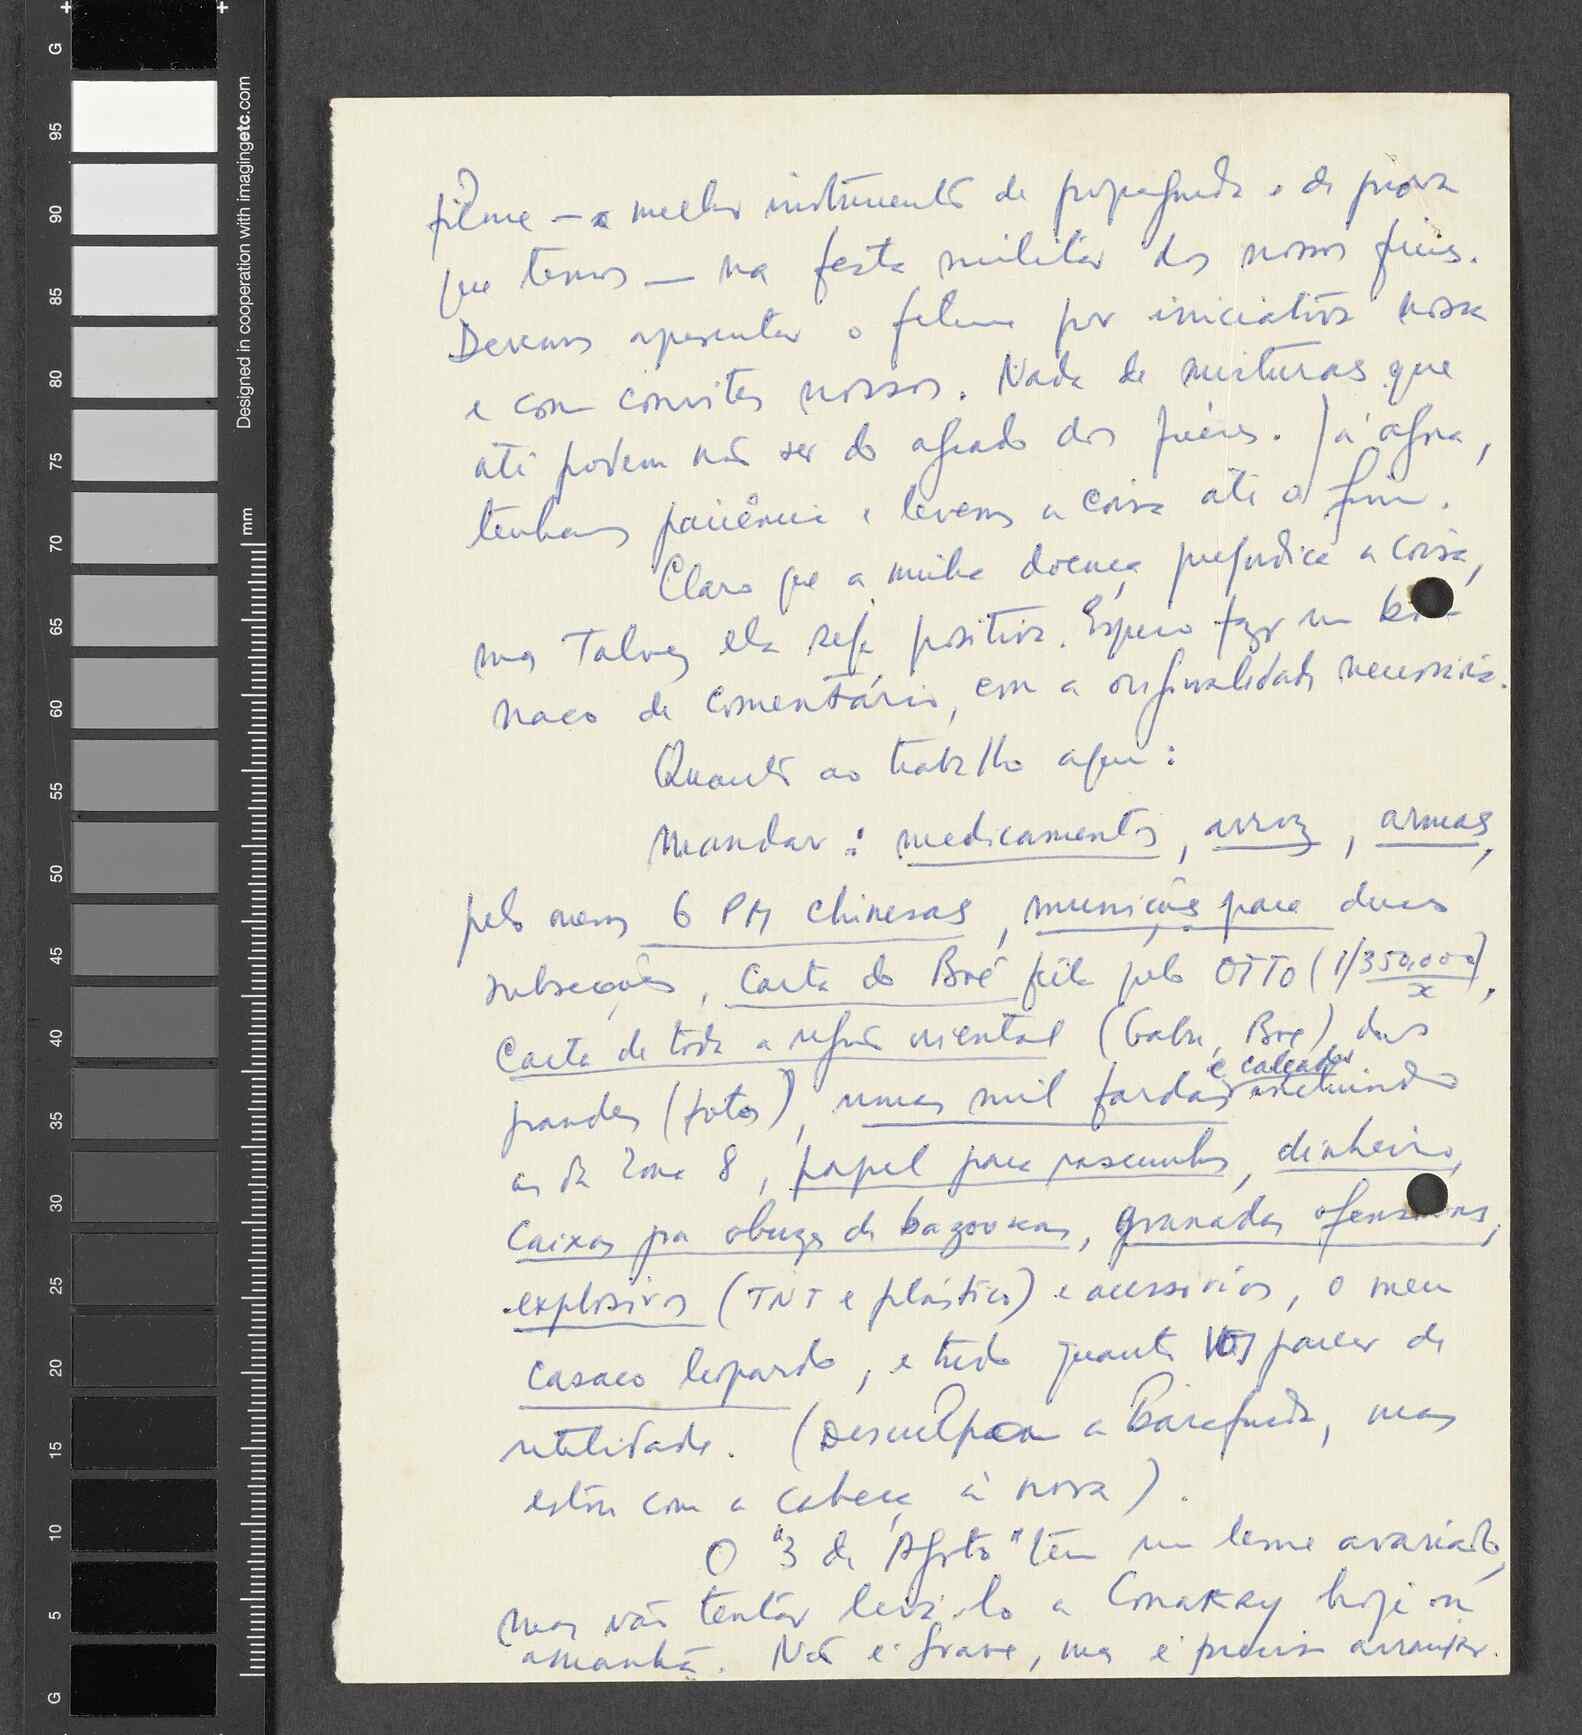 G
95
90
85
80
75
70
65
60
55
50
45
40
35
30
25
20
15
10
5
G
Designed in cooperation with imagingetc.com
mm
filme — o melhor instrumento de propaganda e de prova
que temos — na festa militar dos nossos
Devemos apresentar o filme por iniciativa nossa
e com convites nossos. Nada de misturas que
até podem não ser do agrado dos Já agora,
tenhamos paciência e levemos a coisa até o fim.
Claro que a minha doença prejudica a coisa,
mas Talvez ela seja positiva. Espero fazer um bo-
naco de comentário, com a originalidade necessária.
Quanto ao trabalho aqui:
Mandar: medicamentos, arroz, armas,
pelo menos 6 PM chinesas, munições para duas
subsecções, Carta do Boé feita pelo OTTO (1/350.000),
x
Carta de toda a região oriental (Gabu, Boé) das
e calçados
grandes (fotos), umas mil fardas incluindo
as da Zona 8, papel para rascunhos, dinheiro,
Caixas pra obuzes de bazookas, granadas ofensivas,
explosivos (TNT e plástico) e acessórios, o meu
casaco leopardo, e tudo quanto vos parecer de
utilidade. (Desculpem a mas
estou com a cabeça à nora).
O "3 de Agosto" tem um leme avariado,
mas vão tentar levá-lo a Conakry hoje ou
amanhã. Não é grave, mas é preciso arranjar.